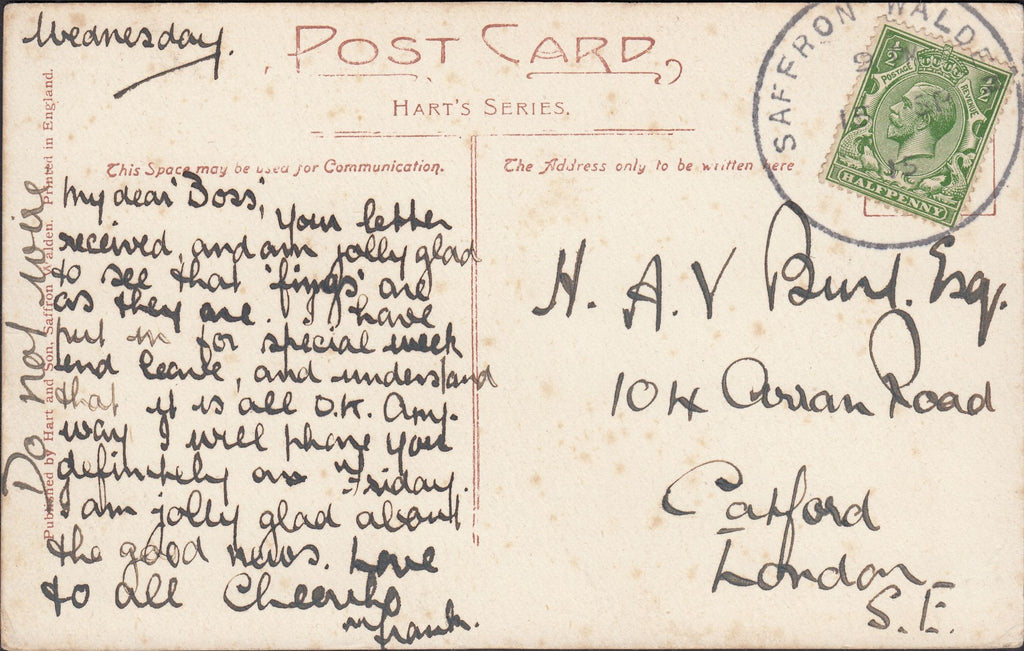 Wednesday.
POST CARD
HART'S SERIES.
This Space may be used for Communication.
The Address only to be written here
My dear 'Boss',
Your letter
received, and am jolly glad
to see that 'fings' are
as they are. I have
put in for special week
end leave, and understand
that it is all O.K. Any-
way I will phone you
definitely on Friday.
I am jolly glad about
the good news. Love
to all Cheerio
Frank.
Do not wire
Published by Hart and Son, Saffron Walden. Printed in England.
H. A. V Burt. Esq.
104 Arran Road
Catford
London
S.E.
SAFFRON WALD
15
½ ½
POSTAGE REVENUE
HALFPENNY